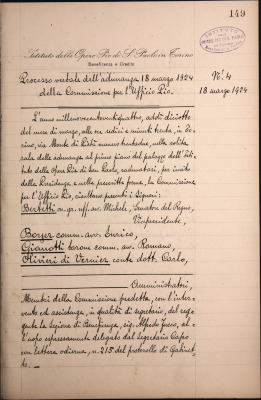 149
Istituto delle Opere Pie di S. Paolo in Torino
Beneficenza e Credito
Processo verbale dell'adunanza 18 marzo 1924
della Commissione per l'Ufficio Pio.
N. 4
18 marzo 1924
L'anno millenovecentoventiquattro, addì diciotto
del mese di marzo, alle ore sedici e minuti trenta, in To-
rino, via Monte di Pietà numero trentadue, nella solita
sala delle adunanze al primo piano del palazzo dell'Isti-
tuto delle Opere Pie di San Paolo, radunatasi, per invito
della Presidenza e nella prescritta forma, la Commissione
per l'Ufficio Pio, risultano presenti i Signori:
Bertetti on. gr. uff. avv. Michele, Senatore del Regno,
Vicepresidente,
Borgez comm. avv. Enrico,
Gianotti barone comm. avv. Romano,
Olivieri di Vernier conte dott. Carlo,
Amministratori,
Membri della Commissione predetta, con l'inter-
vento ed assistenza, in qualità di segretario, del reg-
gente la Sezione di Beneficenza, sig. Alfredo, al-
l'uopo espressamente delegato dal Segretario Capo
con lettera odierna, n. 215 del protocollo di Gabinet-
to. —